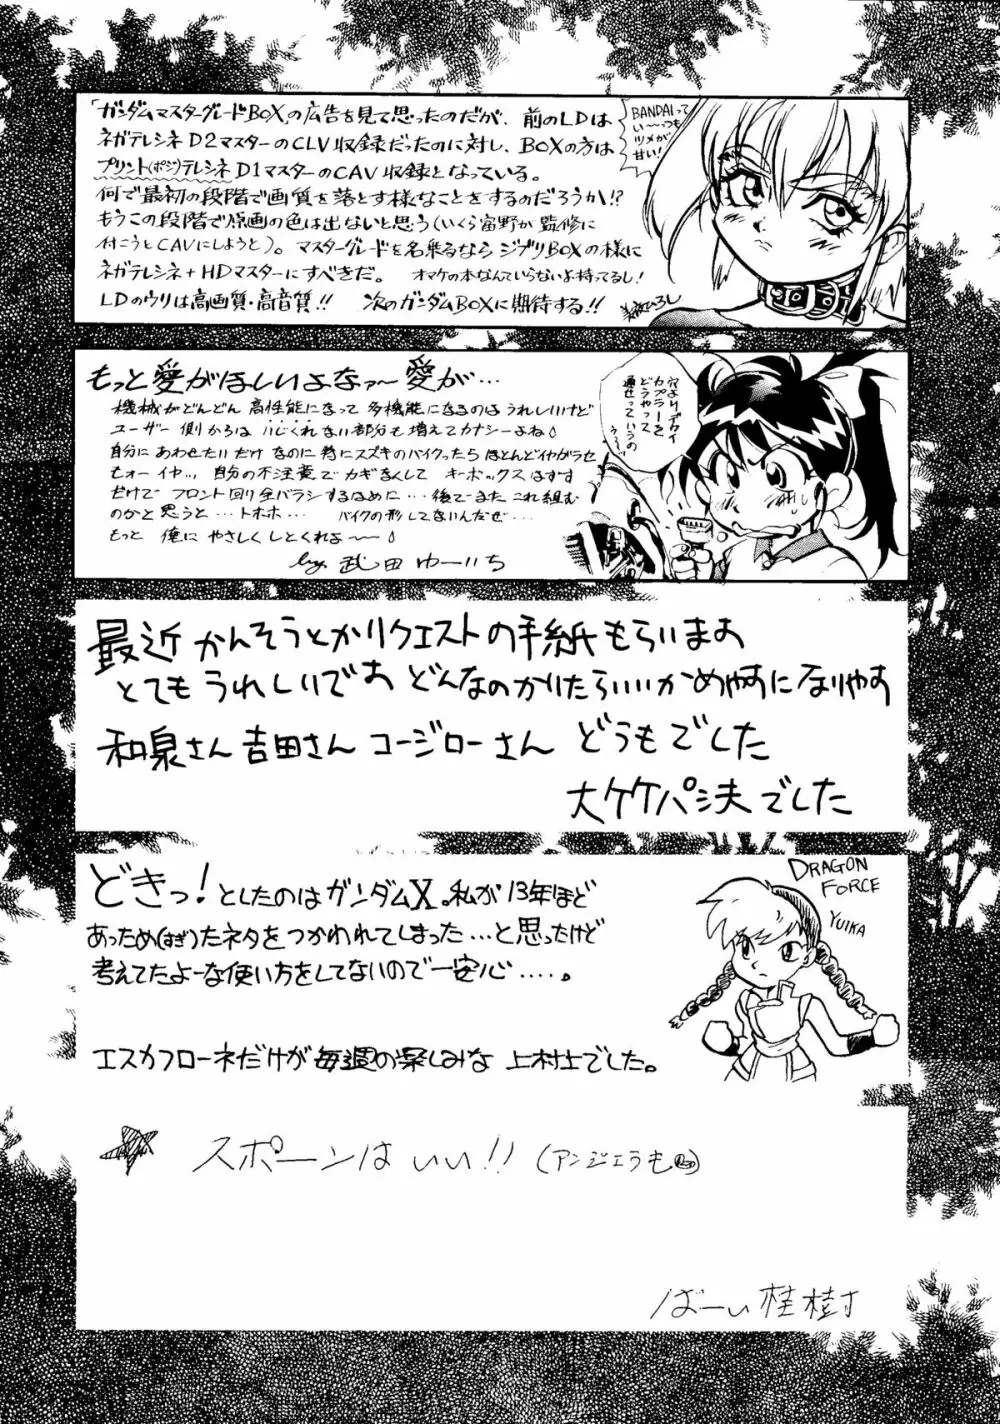 「ガンダムマスターグレードBOX」の広告を見て思ったのだが、前のLDは
ネガテレシネD2マスターのCLV収録だったのに対し、BOXの方は
プリント(ポジ)テレシネD1マスターのCAV収録となっている。
何で最初の段階で画質を落とす様なことをするのだろうか!?
もうこの段階で原画の色は出ないと思う(いくら富野が監修に
付こうとCAVにしようと)。マスターグレードを名乗るならジブリBOXの様に
ネガテレシネ+HDマスターにすべきだ。 オマケの本なんていらないよ持ってるし!
LDのウリは高画質・高音質!! 次のガンダムBOXに期待する!!
BANDAIって
い〜〜つも
ツメが
甘い!
もっと愛がほしいよなァ〜愛が…
機械がどんどん高性能になって多機能になるのはうれしいけど
ユーザー側からはいじくれない部分も増えてカナシーよね
自分にあわせたいだけなのに特にスズキのバイクったらほとんどイヤがらせ
もォーイヤッ、自分の不注意でカギなくしてキーボックスはずす
だけでフロント回り全バラシするはめに…後でまたこれ組む
のかと思うと…トホホ… バイクの形してないんだぜ…
もっと俺にやさしくしとくれよ〜〜
by 武田ゆーいち
穴よりデカイ
カプラーを
どうやって
通せっていうの
最近かんそうとかリクエストの手紙もらいます
とてもうれしいです どんなのかいたらいいかめやすになりやす
和泉さん吉田さんコージローさん どうもでした
大ケケパシ夫でした
どきっ!としたのはガンダムX。私が13年ほど
あっため(すぎ)たネタをつかわれてしまった…と思ったけど
考えてたよーな使い方をしてないので一安心……。
エスカフローネだけが毎週の楽しみな 上村士でした。
DRAGON
FORCE
YUIKA
スポーンはいい!! (アンジェラも)
ばーい桂樹